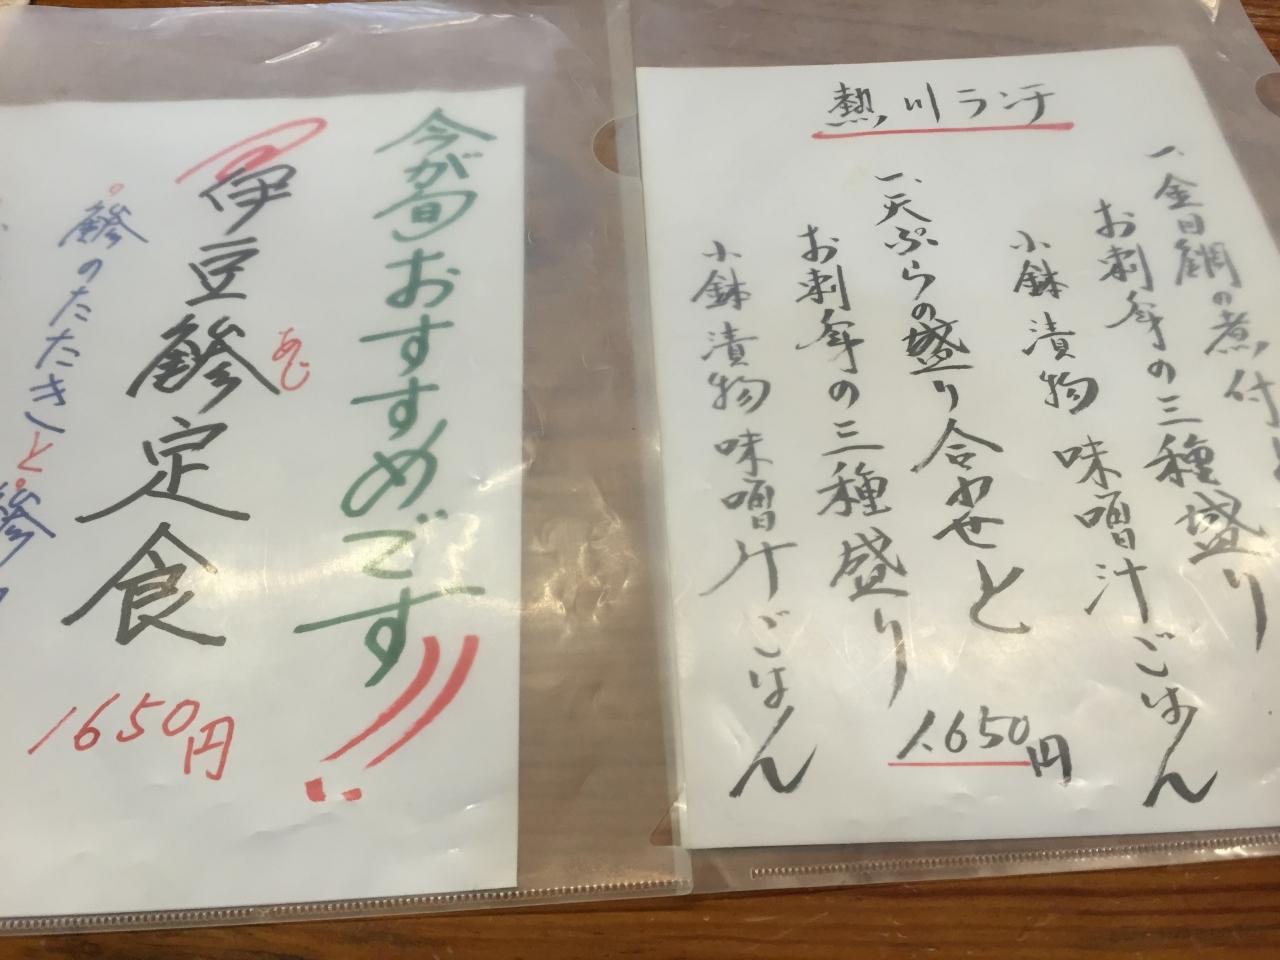 熱川ランチ
一、金目鯛の煮付と
お刺身の三種盛り
小鉢 漬物 味噌汁 ごはん
一、天ぷらの盛り合わせと
お刺身の三種盛り
小鉢 漬物 味噌汁 ごはん
1.650円
今が旬 おすすめです!!
伊豆鯵定食
あじ
1650円
鯵のたたきと鯵